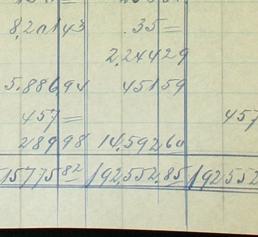 8,201 43 .35 =
2,244 29
5.886 94 451 59
457 = 457
289 98 14,592 60
15775 82 192552.85 192552